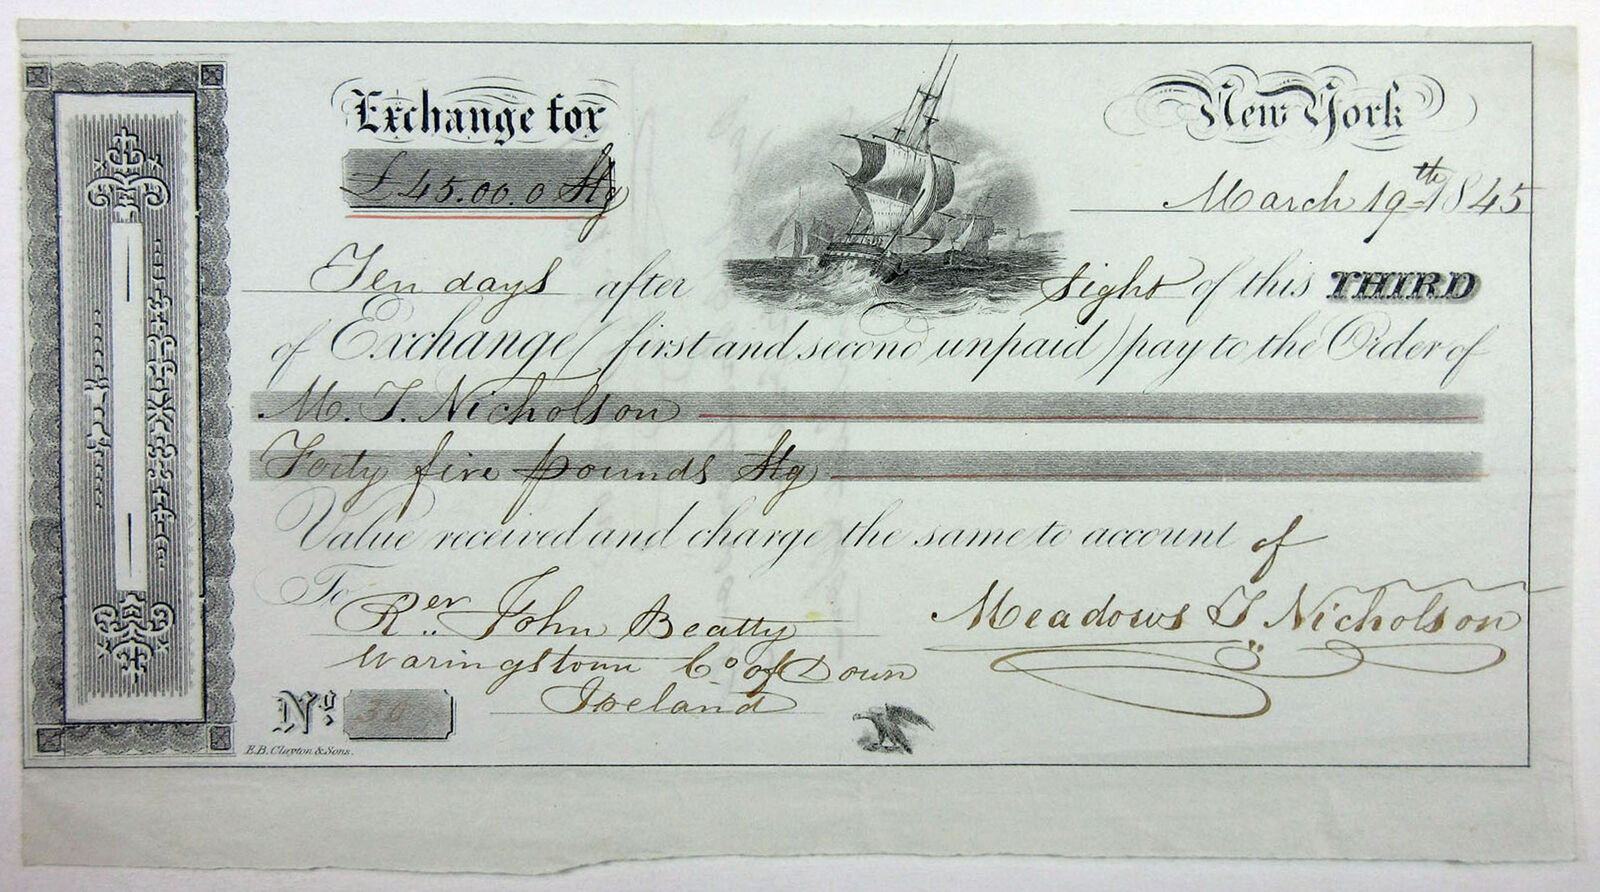 Exchange for
New York
£45.00.0 Stg
March 19th 1845
Ten days after sight of this THIRD
of Exchange (first and second unpaid) pay to the Order of
M. T. Nicholson
Forty five pounds Stg
Value received and charge the same to account of
To Rev. John Beatty
Meadows T. Nicholson
Waringstown Co. of Down
Ireland
No. 36
E.B. Clayton & Sons.